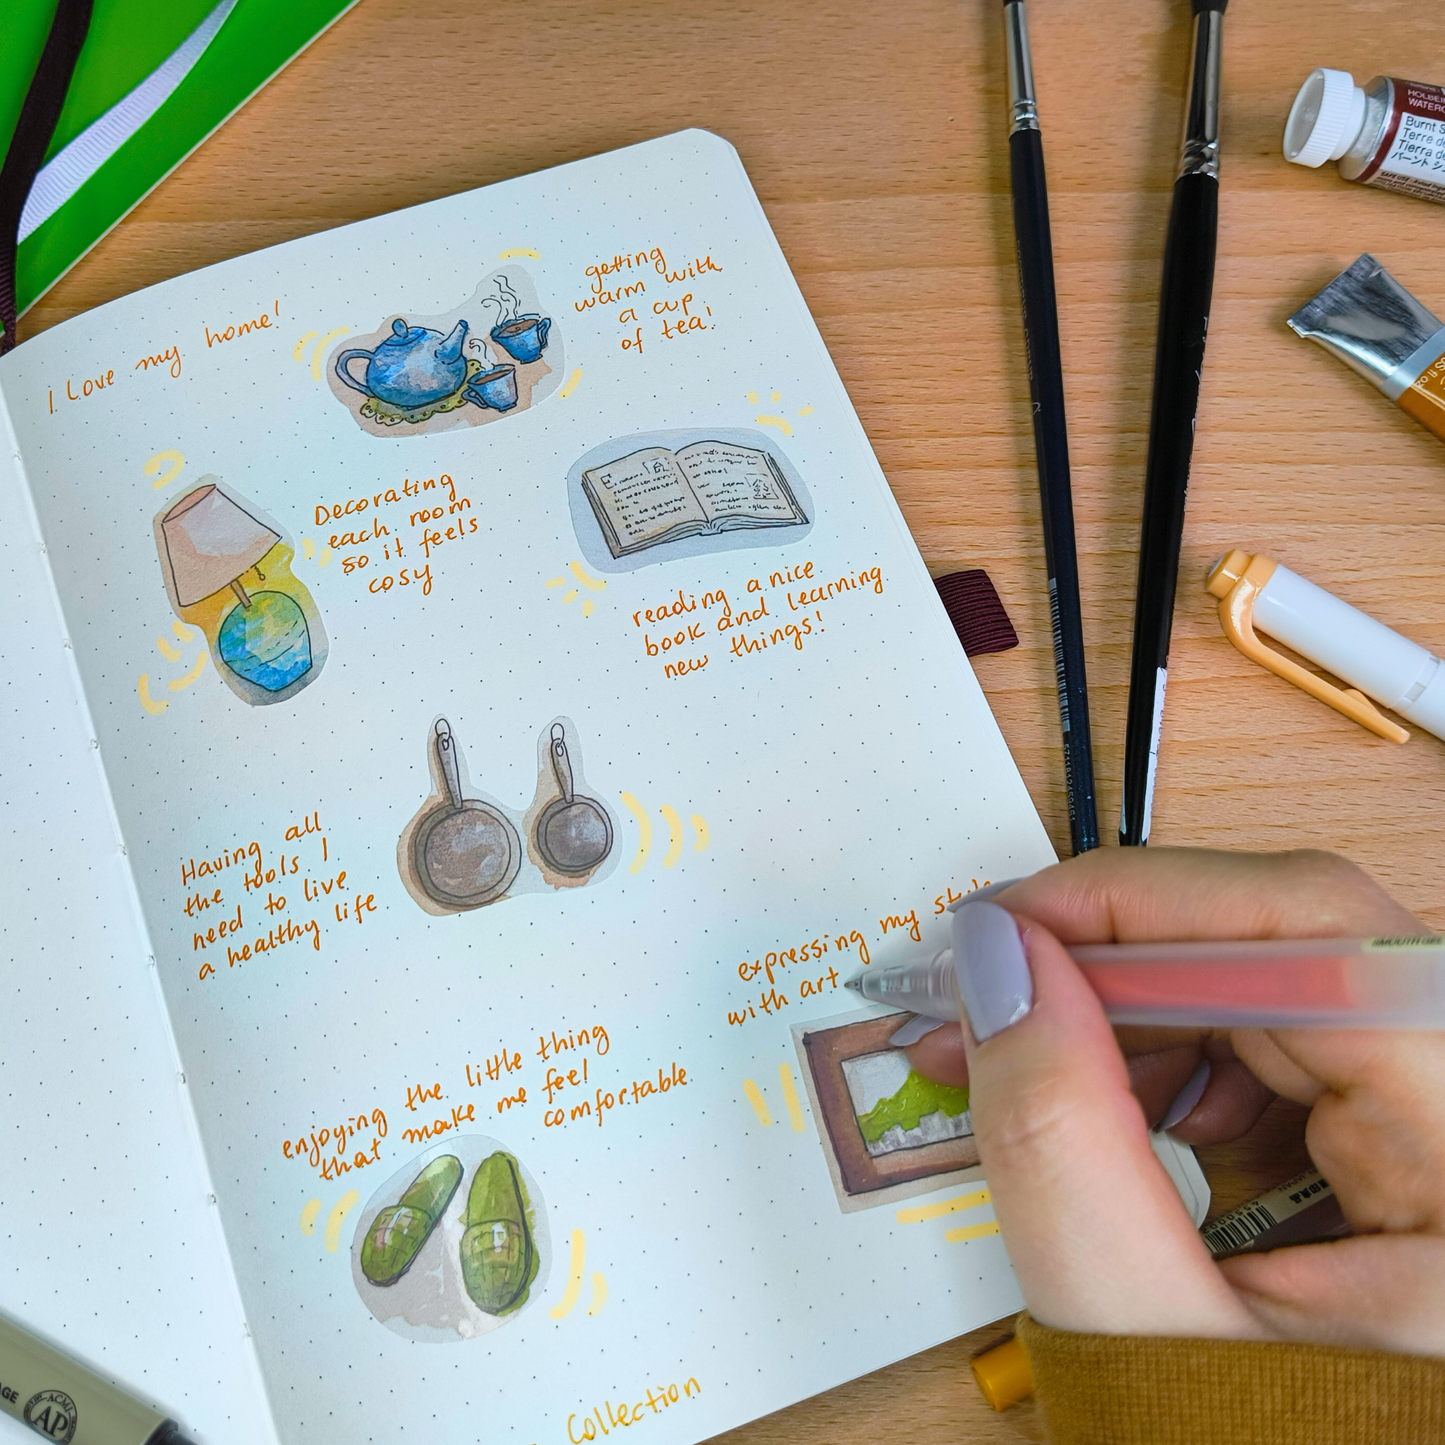 i Love my home!
getting
warm with
a cup
of tea!
Decorating
each room
so it feels
cosy
reading a nice
book and learning
new things!
Having all
the tools I
need to live
a healthy life
expressing my style
with art
enjoying the little thing
that make me feel
comfortable
Collection
HOLBEIN
WATERC
Burnt S
Terre de
Tierra de
バーント シ
5711812459461
SMOOTH GEL
AGE
ACMI
AP
JAPAN